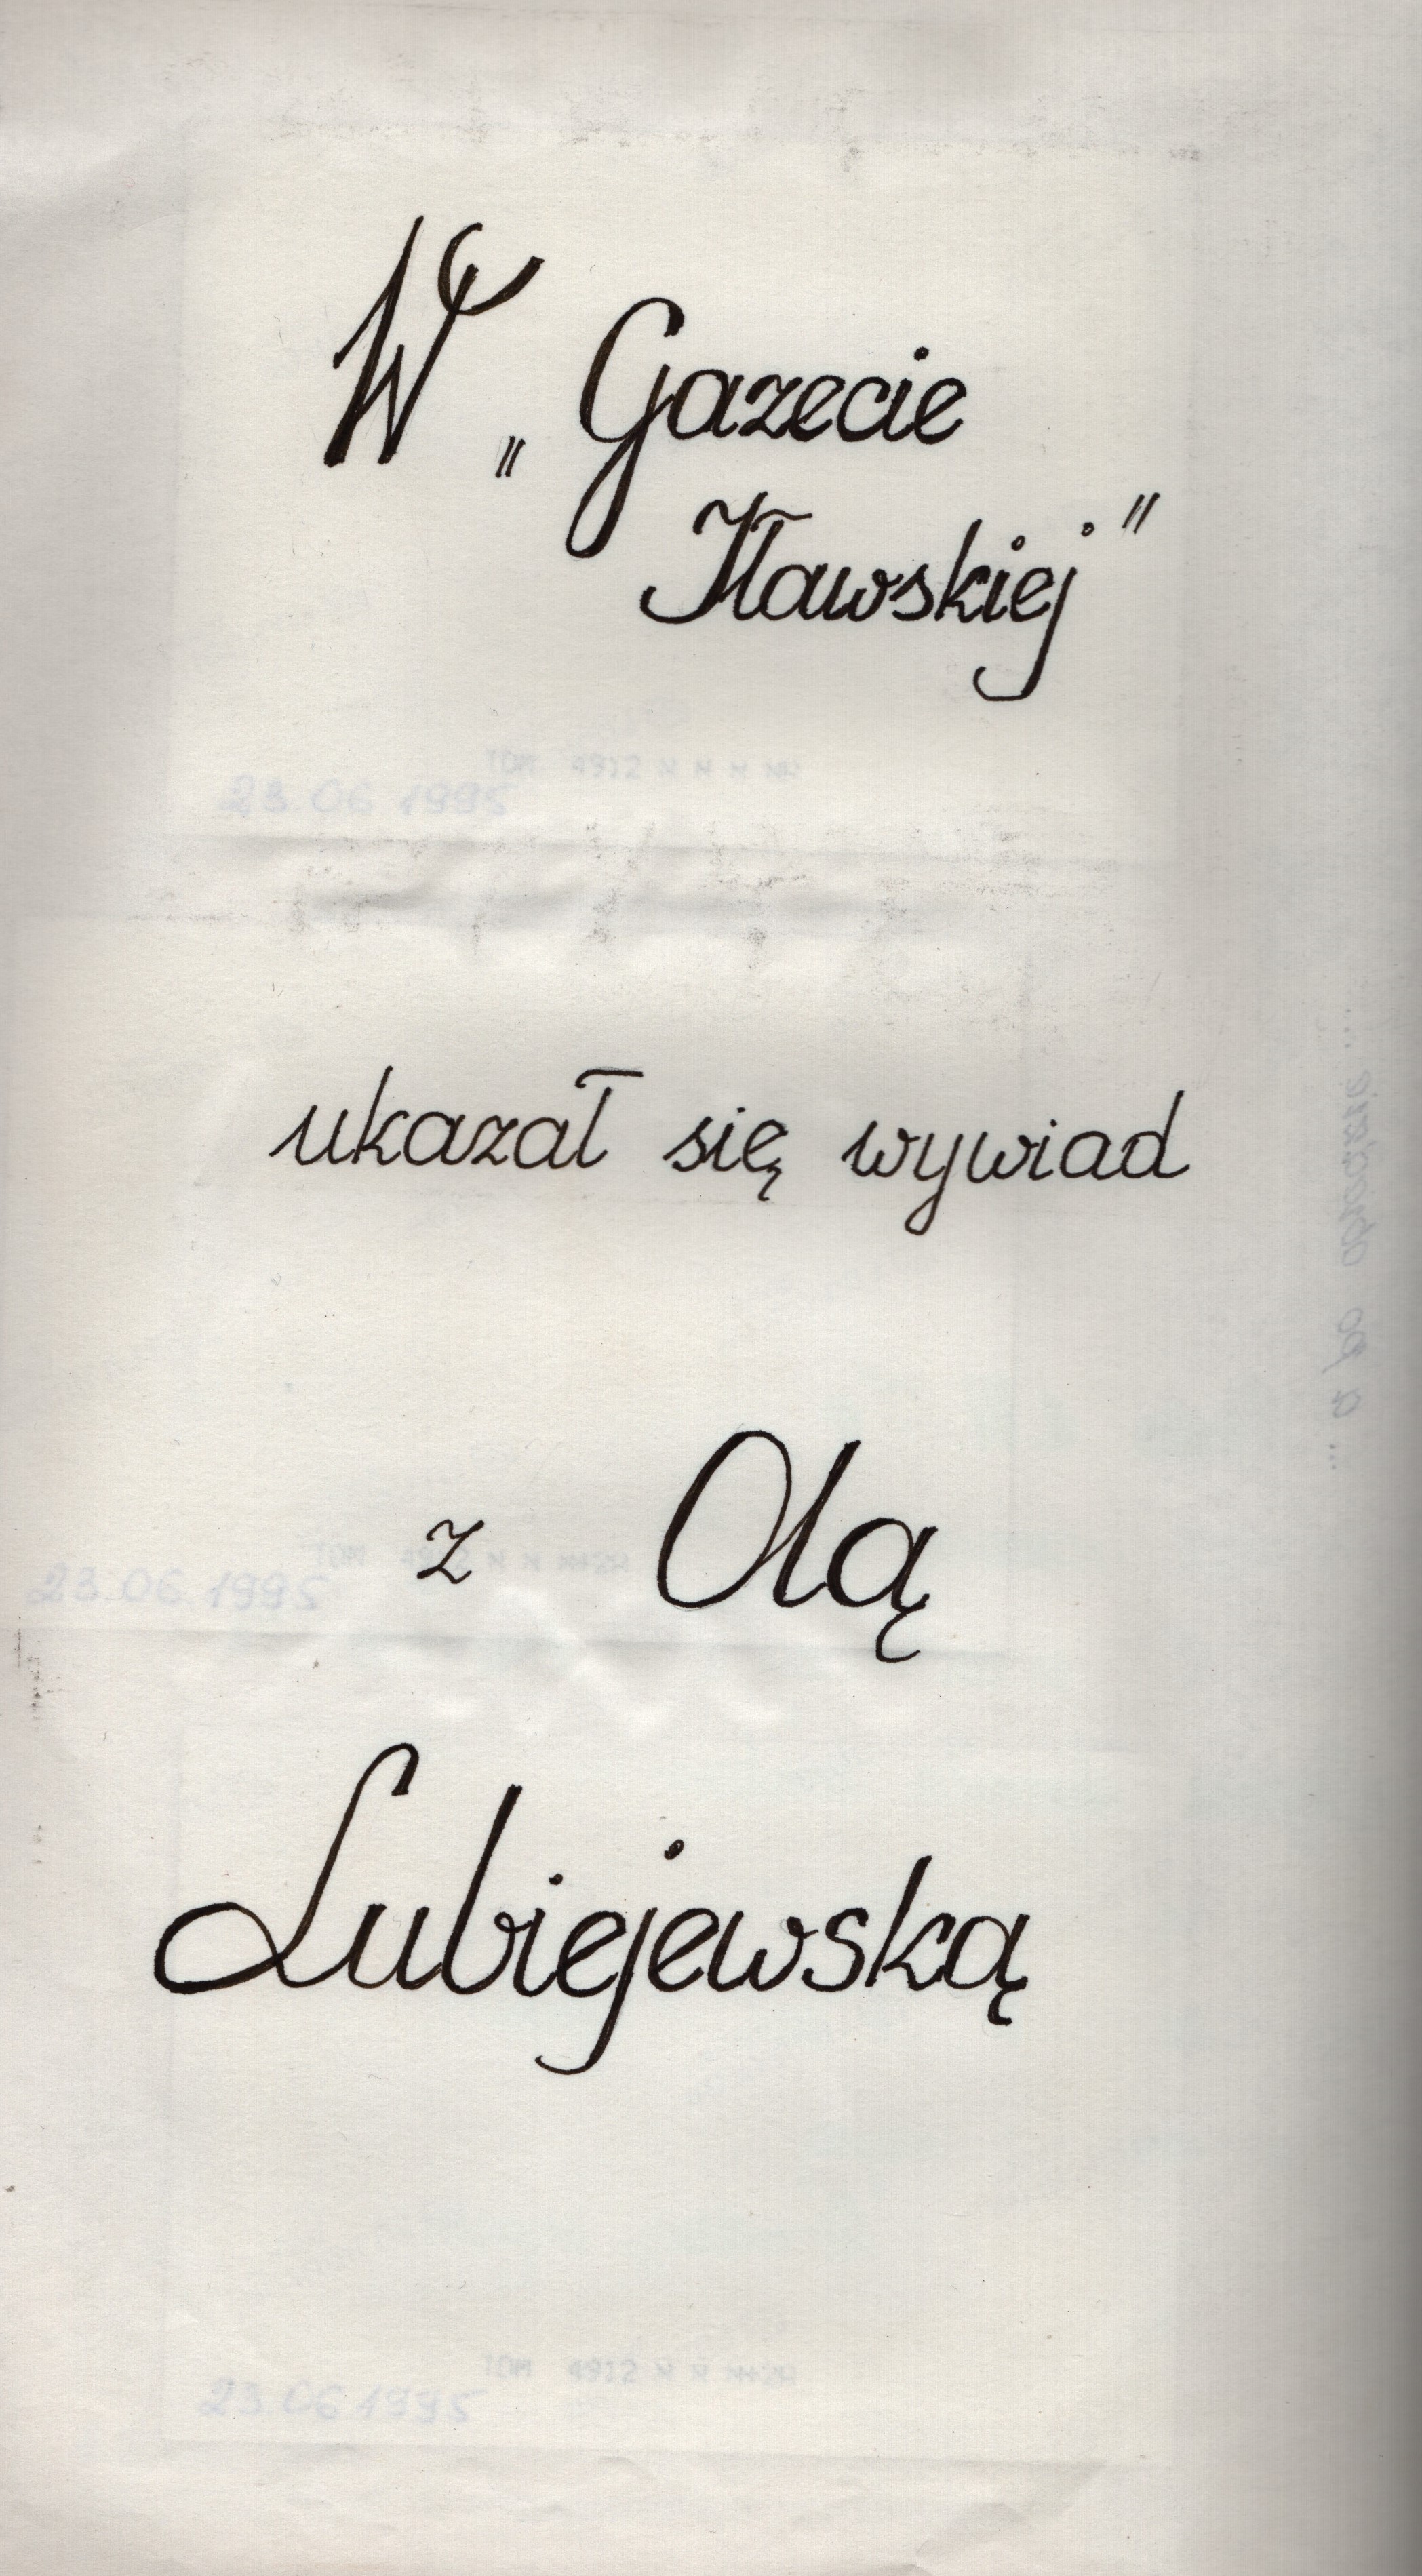 W „Gazecie
Iławskiej"
23.06 1995
TOM 4912
ukazał się wywiad
... a po obiedzie ...
z Olą
23 06 1995
Lubiejewską
TOM 4912
23.06.1995